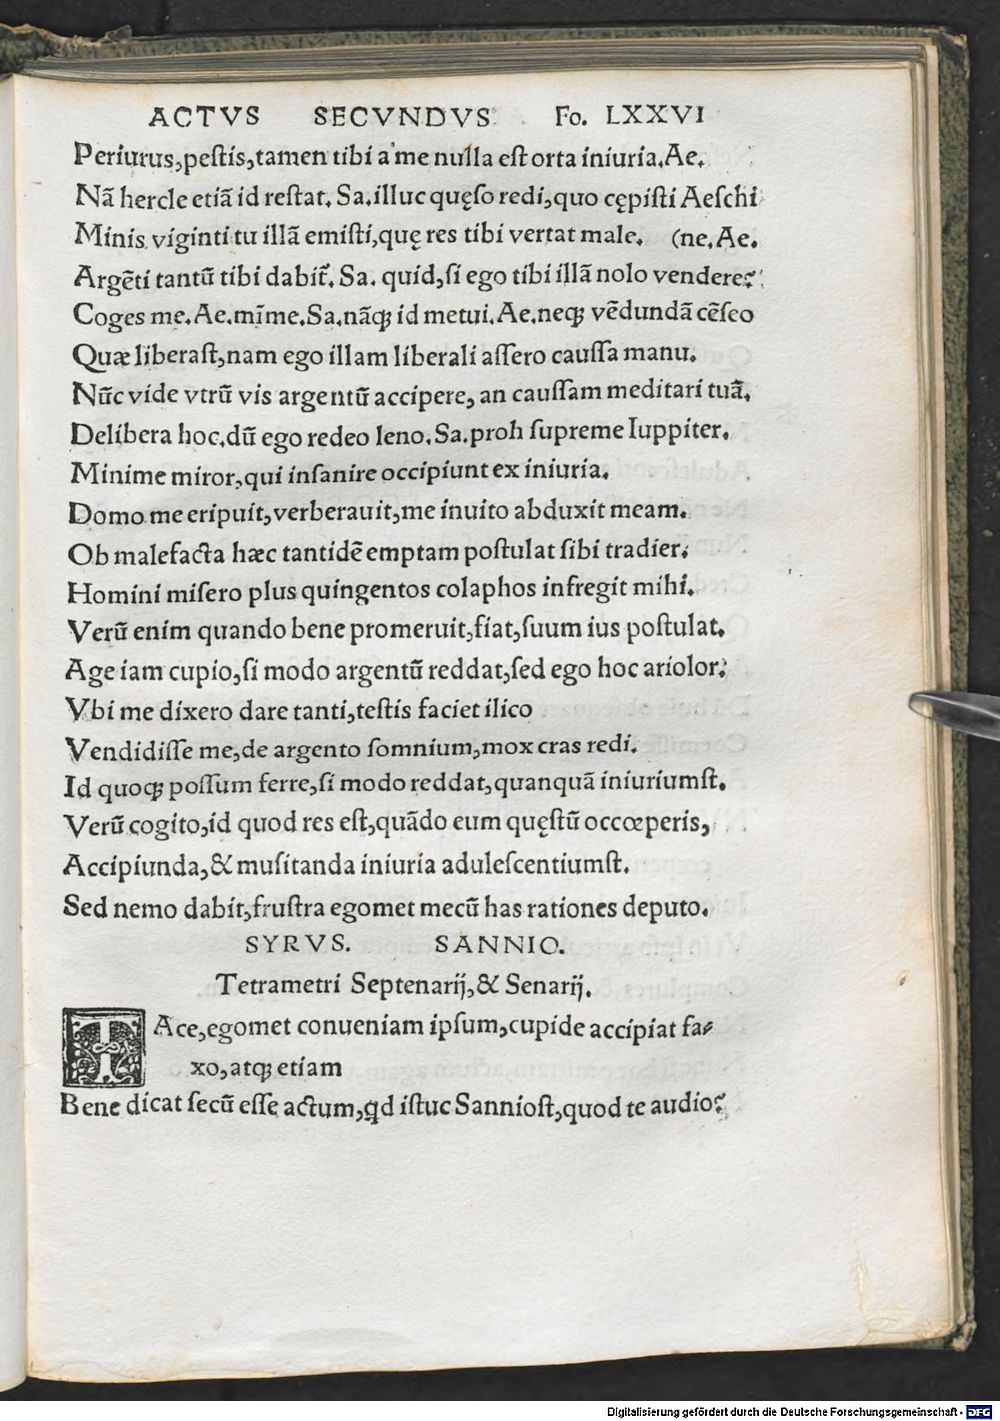 ACTVS SECVNDVS Fo. LXXVI
Periurus,peſtis,tamen tibi a me nulla eſt orta iniuria.Ae.
Nā hercle etiā id reſtat. Sa.illuc quęſo redi,quo cępiſti Aeſchi
Minis viginti tu illā emiſti,quę res tibi vertat male. (ne.Ae.
Argēti tantū tibi dabit̃. Sa. quid,ſi ego tibi illā nolo vendere?
Coges me.Ae.mīme.Sa.nāꝗ id metui.Ae.neꝗ vēdundā cēſeo
Quæ liberaſt,nam ego illam liberali aſſero cauſſa manu.
Nūc vide vtrū vis argentū accipere, an cauſſam meditari tuā.
Delibera hoc.dū ego redeo leno.Sa.proh ſupreme Iuppiter.
Minime miror,qui inſanire occipiunt ex iniuria.
Domo me eripuit,verberauit,me inuito abduxit meam.
Ob malefacta hæc tantidē emptam poſtulat ſibi tradier.
Homini miſero plus quingentos colaphos infregit mihi.
Verū enim quando bene promeruit,fiat,ſuum ius poſtulat.
Age iam cupio,ſi modo argentū reddat,ſed ego hoc ariolor.
Vbi me dixero dare tanti,teſtis faciet ilico
Vendidiſſe me,de argento ſomnium,mox cras redi.
Id quoꝗ poſſum ferre,ſi modo reddat,quanquā iniuriumſt.
Verū cogito,id quod res eſt,quādo eum quęſtū occœperis,
Accipiunda,& muſitanda iniuria aduleſcentiumſt.
Sed nemo dabit,fruſtra egomet mecū has rationes deputo.
SYRVS. SANNIO.
Tetrametri Septenarij,& Senarij.
TAce,egomet conueniam ipſum,cupide accipiat fa⸗
xo,atꝗ etiam
Bene dicat ſecū eſſe actum,qd iſtuc Sannioſt,quod te audio?
Digitalisierung gefördert durch die Deutsche Forschungsgemeinschaft - DFG